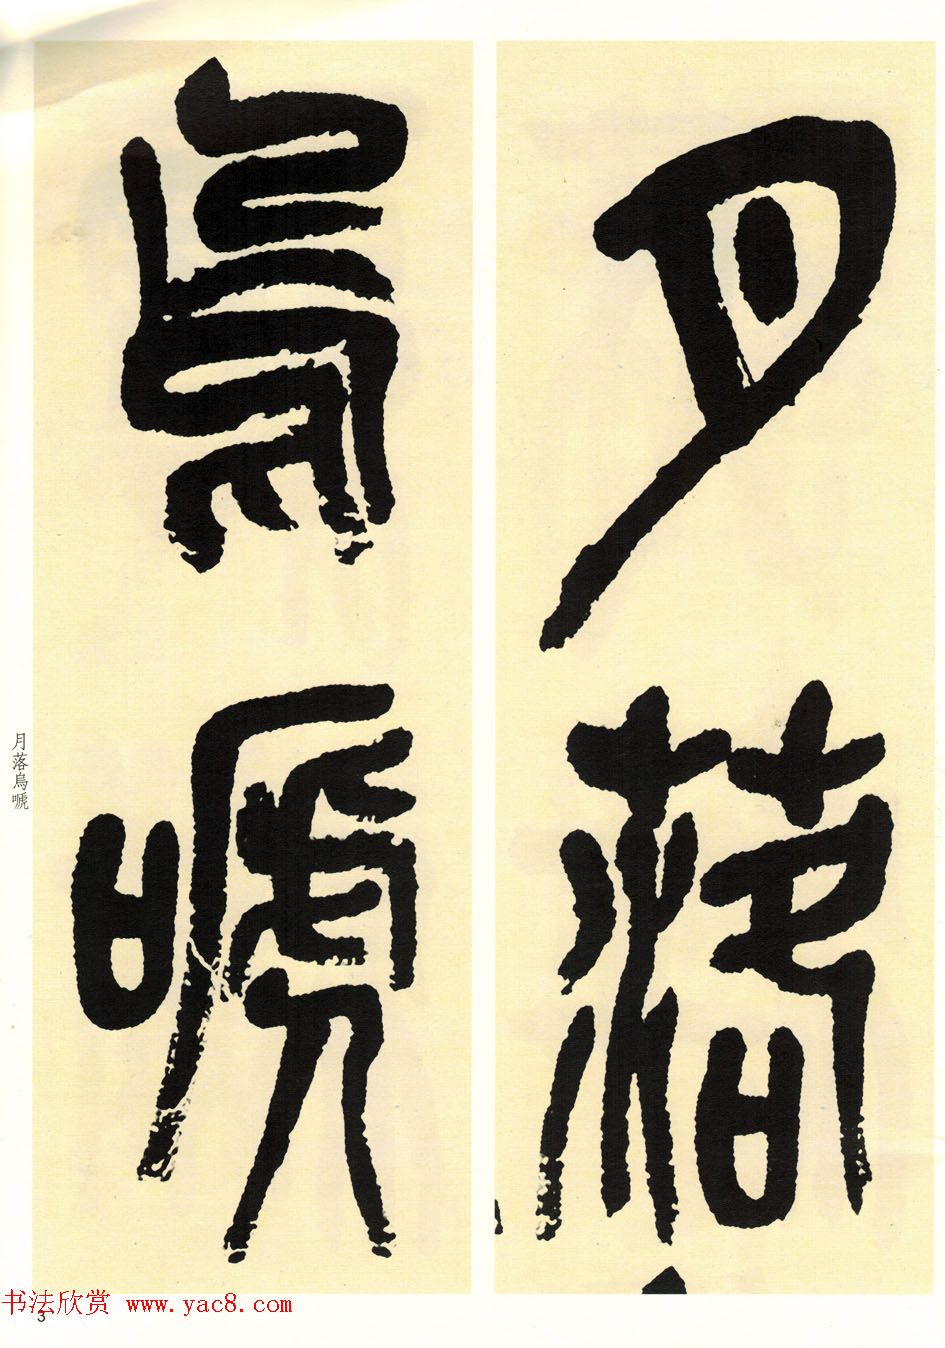 月落
烏嗁
月落烏嗁
书法欣赏 www.yac8.com
3